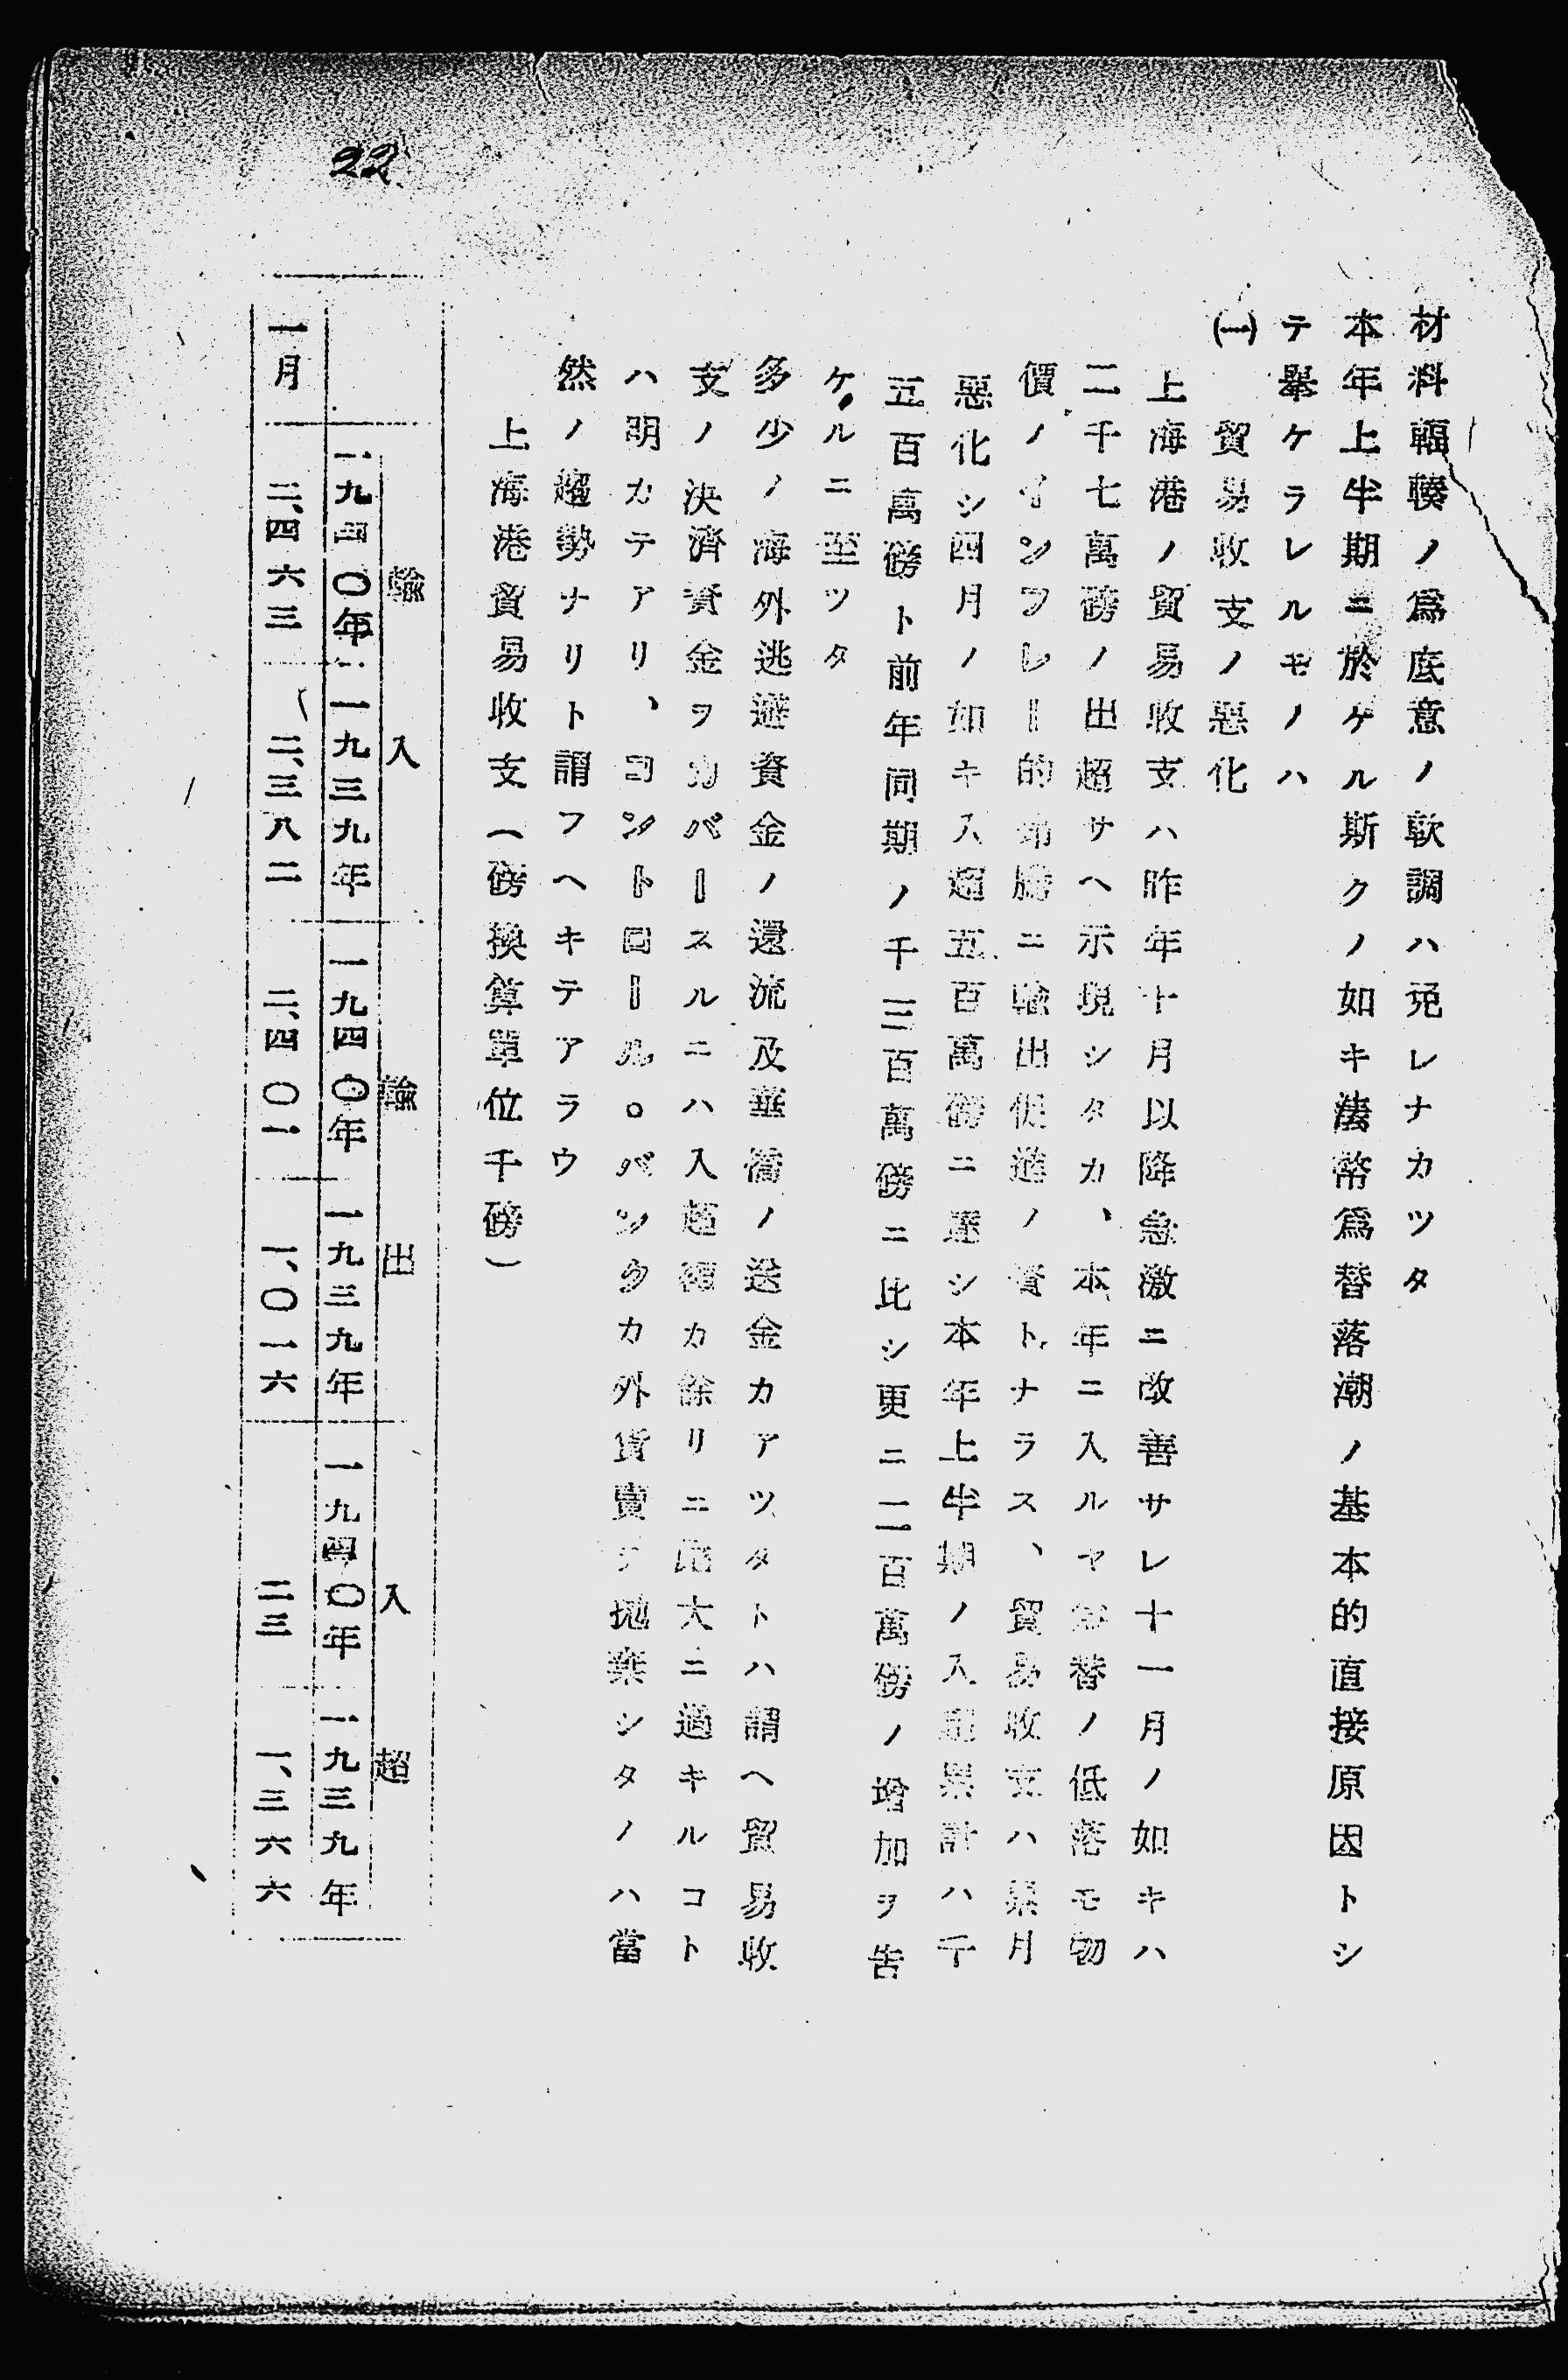 22
材料輻輳ノ爲底意ノ軟調ハ免レナカツタ
本年上半期ニ於ケル斯クノ如キ法幣爲替落潮ノ基本的直接原因トシ
テ擧ケラレルモノハ
(一) 貿易收支ノ惡化
上海港ノ貿易收支ハ昨年十月以降急激ニ改善サレ十一月ノ如キハ
二千七萬磅ノ出超サヘ示現シタカ、本年ニ入ルヤ爲替ノ低落モ物
價ノインフレー的昻騰ニ輸出促進ノ資トナラス、貿易收支ハ累月
惡化シ四月ノ如キ入超五百萬磅ニ達シ本年上半期ノ入超累計ハ千
五百萬磅ト前年同期ノ千三百萬磅ニ比シ更ニ二百萬磅ノ增加ヲ告
ケルニ至ツタ
多少ノ海外逃避資金ノ還流及華僑ノ送金カアツタトハ謂ヘ貿易收
支ノ決濟資金ヲカバースルニハ入超額カ餘リニ尨大ニ過キルコト
ハ明カテアリ、コントロール。バンクカ外貨賣ヲ抛棄シタノハ當
然ノ趨勢ナリト謂フヘキテアラウ
上海港貿易收支(磅換算單位千磅)
輸入 輸出 入超
一九四〇年 一九三九年 一九四〇年 一九三九年 一九四〇年 一九三九年
一月 二、四六三 二、三八二 二、四〇一 一、〇一六 二三 一、三六六